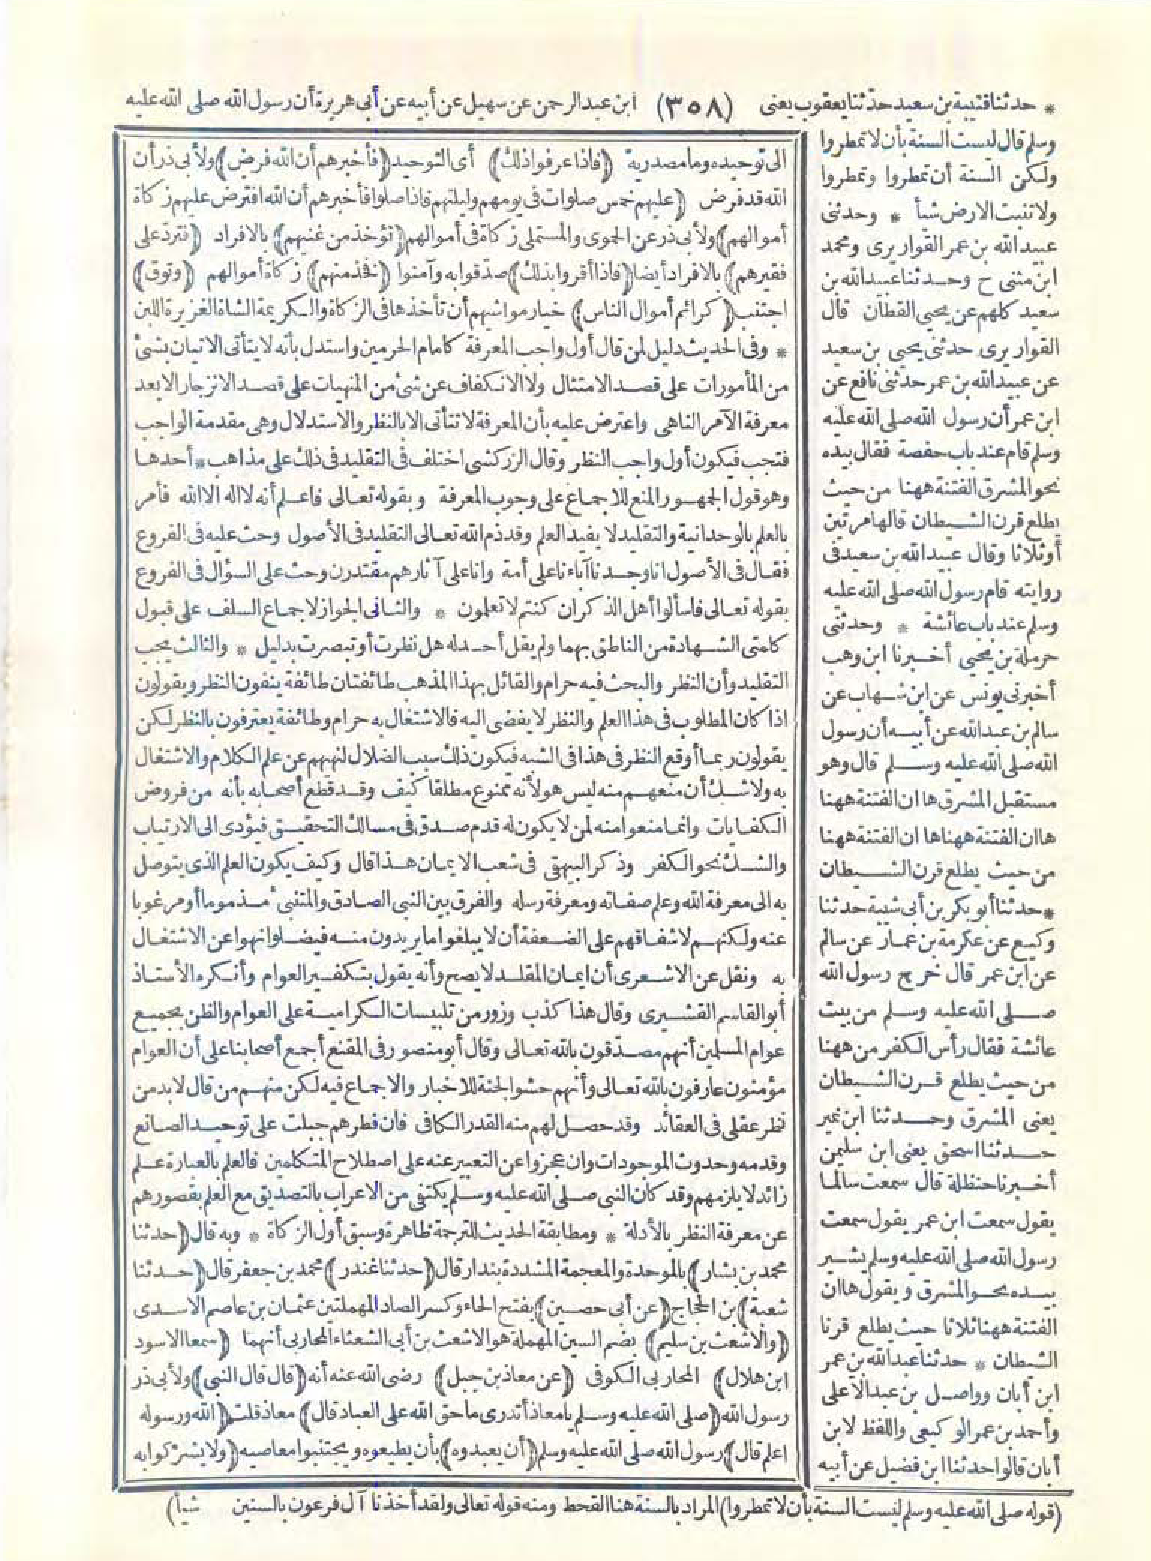 * حدثنا قتيبة بن سعيد حدثنا يعقوب يعنى (٣٥٨) ابن عبد الرحمن عن سهيل عن أبيه عن أبى هريرة أن رسول الله صلى الله عليه
وسلم قال ليست السنة بأن لا تمطروا
ولكن السنة أن تمطروا وتمطروا
ولا تنبت الارض شيأ * وحدثنى
عبيد الله بن عمر القواريرى ومحمد
ابن مثنى ح وحدثنا عبيد الله بن
سعيد كلهم عن يحيى القطان قال
القواريرى حدثنى يحيى بن سعيد
عن عبيد الله بن عمر حدثنى نافع عن
ابن عمر أن رسول الله صلى الله عليه
وسلم قام عند باب حفصة فقال بيده
نحو المشرق الفتنة ههنا من حيث
يطلع قرن الشيطان قالها مرتين
أو ثلاثا وقال عبيد الله بن سعيد فى
روايته قام رسول الله صلى الله عليه
وسلم عند باب عائشة * وحدثنى
حرملة بن يحيى أخبرنا ابن وهب
أخبرنى يونس عن ابن شهاب عن
سالم بن عبد الله عن أبيه أن رسول
الله صلى الله عليه وسلم قال وهو
مستقبل المشرق ها ان الفتنة ههنا
ها ان الفتنة ههنا ها ان الفتنة ههنا
من حيث يطلع قرن الشيطان
* حدثنا أبو بكر بن أبى شيبة حدثنا
وكيع عن عكرمة بن عمار عن سالم
عن ابن عمر قال خرج رسول الله
صلى الله عليه وسلم من بيت
عائشة فقال رأس الكفر من ههنا
من حيث يطلع قرن الشيطان
يعنى المشرق وحدثنا ابن نمير
حدثنا اسحق يعنى ابن سليمن
أخبرنا حنظلة قال سمعت سالما
يقول سمعت ابن عمر يقول سمعت
رسول الله صلى الله عليه وسلم يشير
بيده نحو المشرق ويقول ها ان
الفتنة ههنا ثلاثا حيث يطلع قرنا
الشيطان * حدثنا عبد الله بن عمر
ابن أبان وواصل بن عبد الاعلى
وأحمد بن عمر الوكيعى واللفظ لابن
أبان قالوا حدثنا ابن فضيل عن أبيه
الى توحيده وما مصدرية (فاذا عرفوا ذلك) أى التوحيد (فأخبرهم أن الله فرض) ولأبى ذر أن
الله قد فرض (عليهم خمس صلوات فى يومهم وليلتهم فاذا صلوا فأخبرهم أن الله افترض عليهم زكاة
أموالهم) ولأبى ذر عن الحموى والمستملى زكاة فى أموالهم (تؤخذ من غنيهم) بالافراد (فترد على
فقيرهم) بالافراد أيضا (فاذا أقروا بذلك) صدقوا به وآمنوا (فخذ منهم) زكاة أموالهم (وتوق)
اجتنب (كرائم أموال الناس) خيار مواشيهم أن تأخذها فى الزكاة والكريمة الشاة الغزيرة اللبن
* وفى الحديث دليل لمن قال أول واجب المعرفة كامام الحرمين واستدل بأنه لا يتأتى الاتيان بشئ
من المأمورات على قصد الامتثال ولا الانكفاف عن شئ من المنهيات على قصد الانزجار الا بعد
معرفة الآمر الناهى واعترض عليه بأن المعرفة لا تتأتى الا بالنظر والاستدلال وهى مقدمة الواجب
فتجب فيكون أول واجب النظر وقال الزركشى اختلف فى التقليد فى ذلك على مذاهب * أحدها
وهو قول الجمهور المنع للاجماع على وجوب المعرفة وبقوله تعالى فاعلم أنه لا اله الا الله فأمر
بالعلم بالوحدانية والتقليد لا يفيد العلم وقد ذم الله تعالى التقليد فى الأصول وحث عليه فى الفروع
فقال فى الأصول انا وجدنا آباءنا على أمة وانا على آثارهم مقتدون وحث على السؤال فى الفروع
بقوله تعالى فاسألوا أهل الذكر ان كنتم لا تعلمون * والثانى الجواز لاجماع السلف على قبول
كلمتى الشهادة من الناطق بهما ولم يقل أحد له هل نظرت أو تبصرت بدليل * والثالث يجب
التقليد وأن النظر والبحث فيه حرام والقائل بهذا المذهب طائفتان طائفة ينفون النظر ويقولون
اذا كان المطلوب فى هذا العلم والنظر لا يفضى اليه فالاشتغال به حرام وطائفة يعترفون بالنظر لكن
يقولون ربما أوقع النظر فى هذا فى الشبه فيكون ذلك سبب الضلال لنهيهم عن علم الكلام والاشتغال
به ولا شك أن منعهم منه ليس هو لأنه ممنوع مطلقا كيف وقد قطع أصحابه بأنه من فروض
الكفايات وانما منعوا منه لمن لا يكون له قدم صدق فى مسالك التحقيق فيؤدى الى الارتياب
والشك نحو الكفر وذكر البيهقى فى شعب الايمان هذا قال وكيف يكون العلم الذى يتوصل
به الى معرفة الله وعلم صفاته ومعرفة رسله والفرق بين النبى الصادق والمتنبئ مذموما أو مرغوبا
عنه ولكنهم لاشفاقهم على الضعفة أن لا يبلغوا ما يريدون منه فيضلوا نهوا عن الاشتغال
به ونقل عن الاشعرى أن ايمان المقلد لا يصح وأنه يقول بتكفير العوام وأنكره الأستاذ
أبو القاسم القشيرى وقال هذا كذب وزور من تلبيسات الكرامية على العوام والظن بجميع
عوام المسلمين أنهم مصدقون بالله تعالى وقال أبو منصور فى المقنع أجمع أصحابنا على أن العوام
مؤمنون عارفون بالله تعالى وأنهم حشو الجنة للاخبار والاجماع فيه لكن منهم من قال لا بد من
نظر عقلى فى العقائد وقد حصل لهم منه القدر الكافى فان فطرهم جبلت على توحيد الصانع
وقدمه وحدوث الموجودات وان عجزوا عن التعبير عنه على اصطلاح المتكلمين فالعلم بالعبارة علم
زائد لا يلزمهم وقد كان النبى صلى الله عليه وسلم يكتفى من الاعراب بالتصديق مع العلم بقصورهم
عن معرفة النظر بالأدلة * ومطابقة الحديث للترجمة ظاهرة وسبق أول الزكاة * وبه قال (حدثنا
محمد بن بشار) بالموحدة والمعجمة المشددة بندار قال (حدثنا غندر) محمد بن جعفر قال (حدثنا
شعبة) بن الحجاج (عن أبى حصين) بفتح الحاء وكسر الصاد المهملتين عثمان بن عاصم الاسدى
(والاشعث بن سليم) بضم السين المهملة هو الاشعث بن أبى الشعثاء المحاربى أنهما (سمعا الاسود
ابن هلال) المحاربى الكوفى (عن معاذ بن جبل) رضى الله عنه أنه (قال قال النبى) ولأبى ذر
رسول الله (صلى الله عليه وسلم يا معاذ أتدرى ما حق الله على العباد قال) معاذ قلت (الله ورسوله
اعلم قال) رسول الله صلى الله عليه وسلم (أن يعبدوه) بأن يطيعوه ويجتنبوا معاصيه (ولا يشركوا به
(قوله صلى الله عليه وسلم ليست السنة بأن لا تمطروا) المراد بالسنة هنا القحط ومنه قوله تعالى ولقد أخذنا آل فرعون بالسنين شيأ)